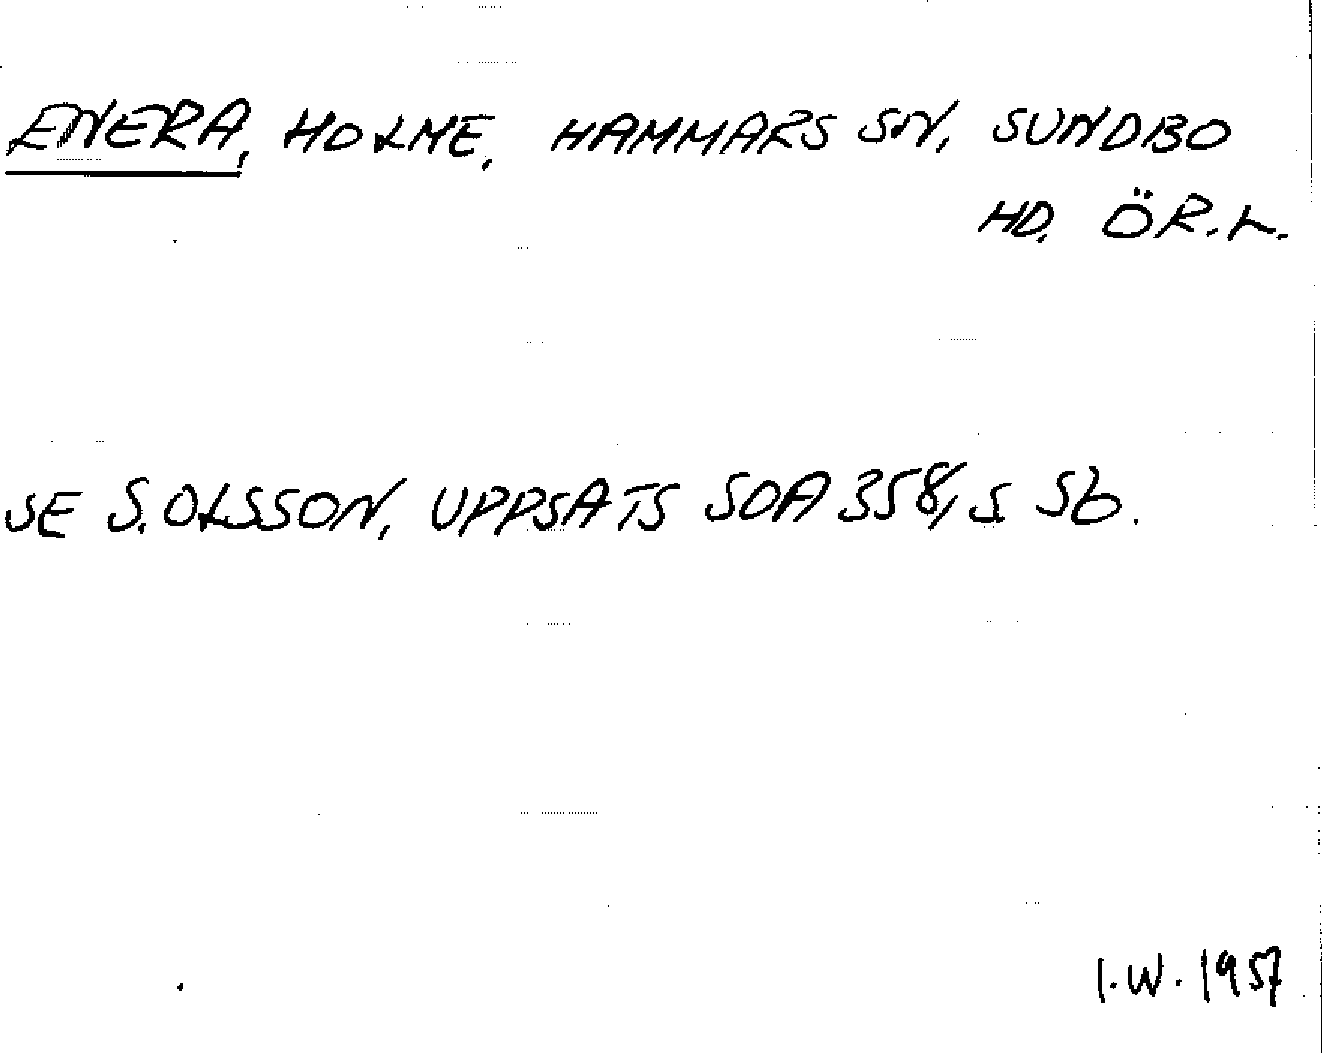 ENERA, HOLME, HAMMARS SN, SUNDBO
HD, ÖR.L.
SE S. OLSSON, UPPSATS SOA 358, S 56.
I.W. 1957